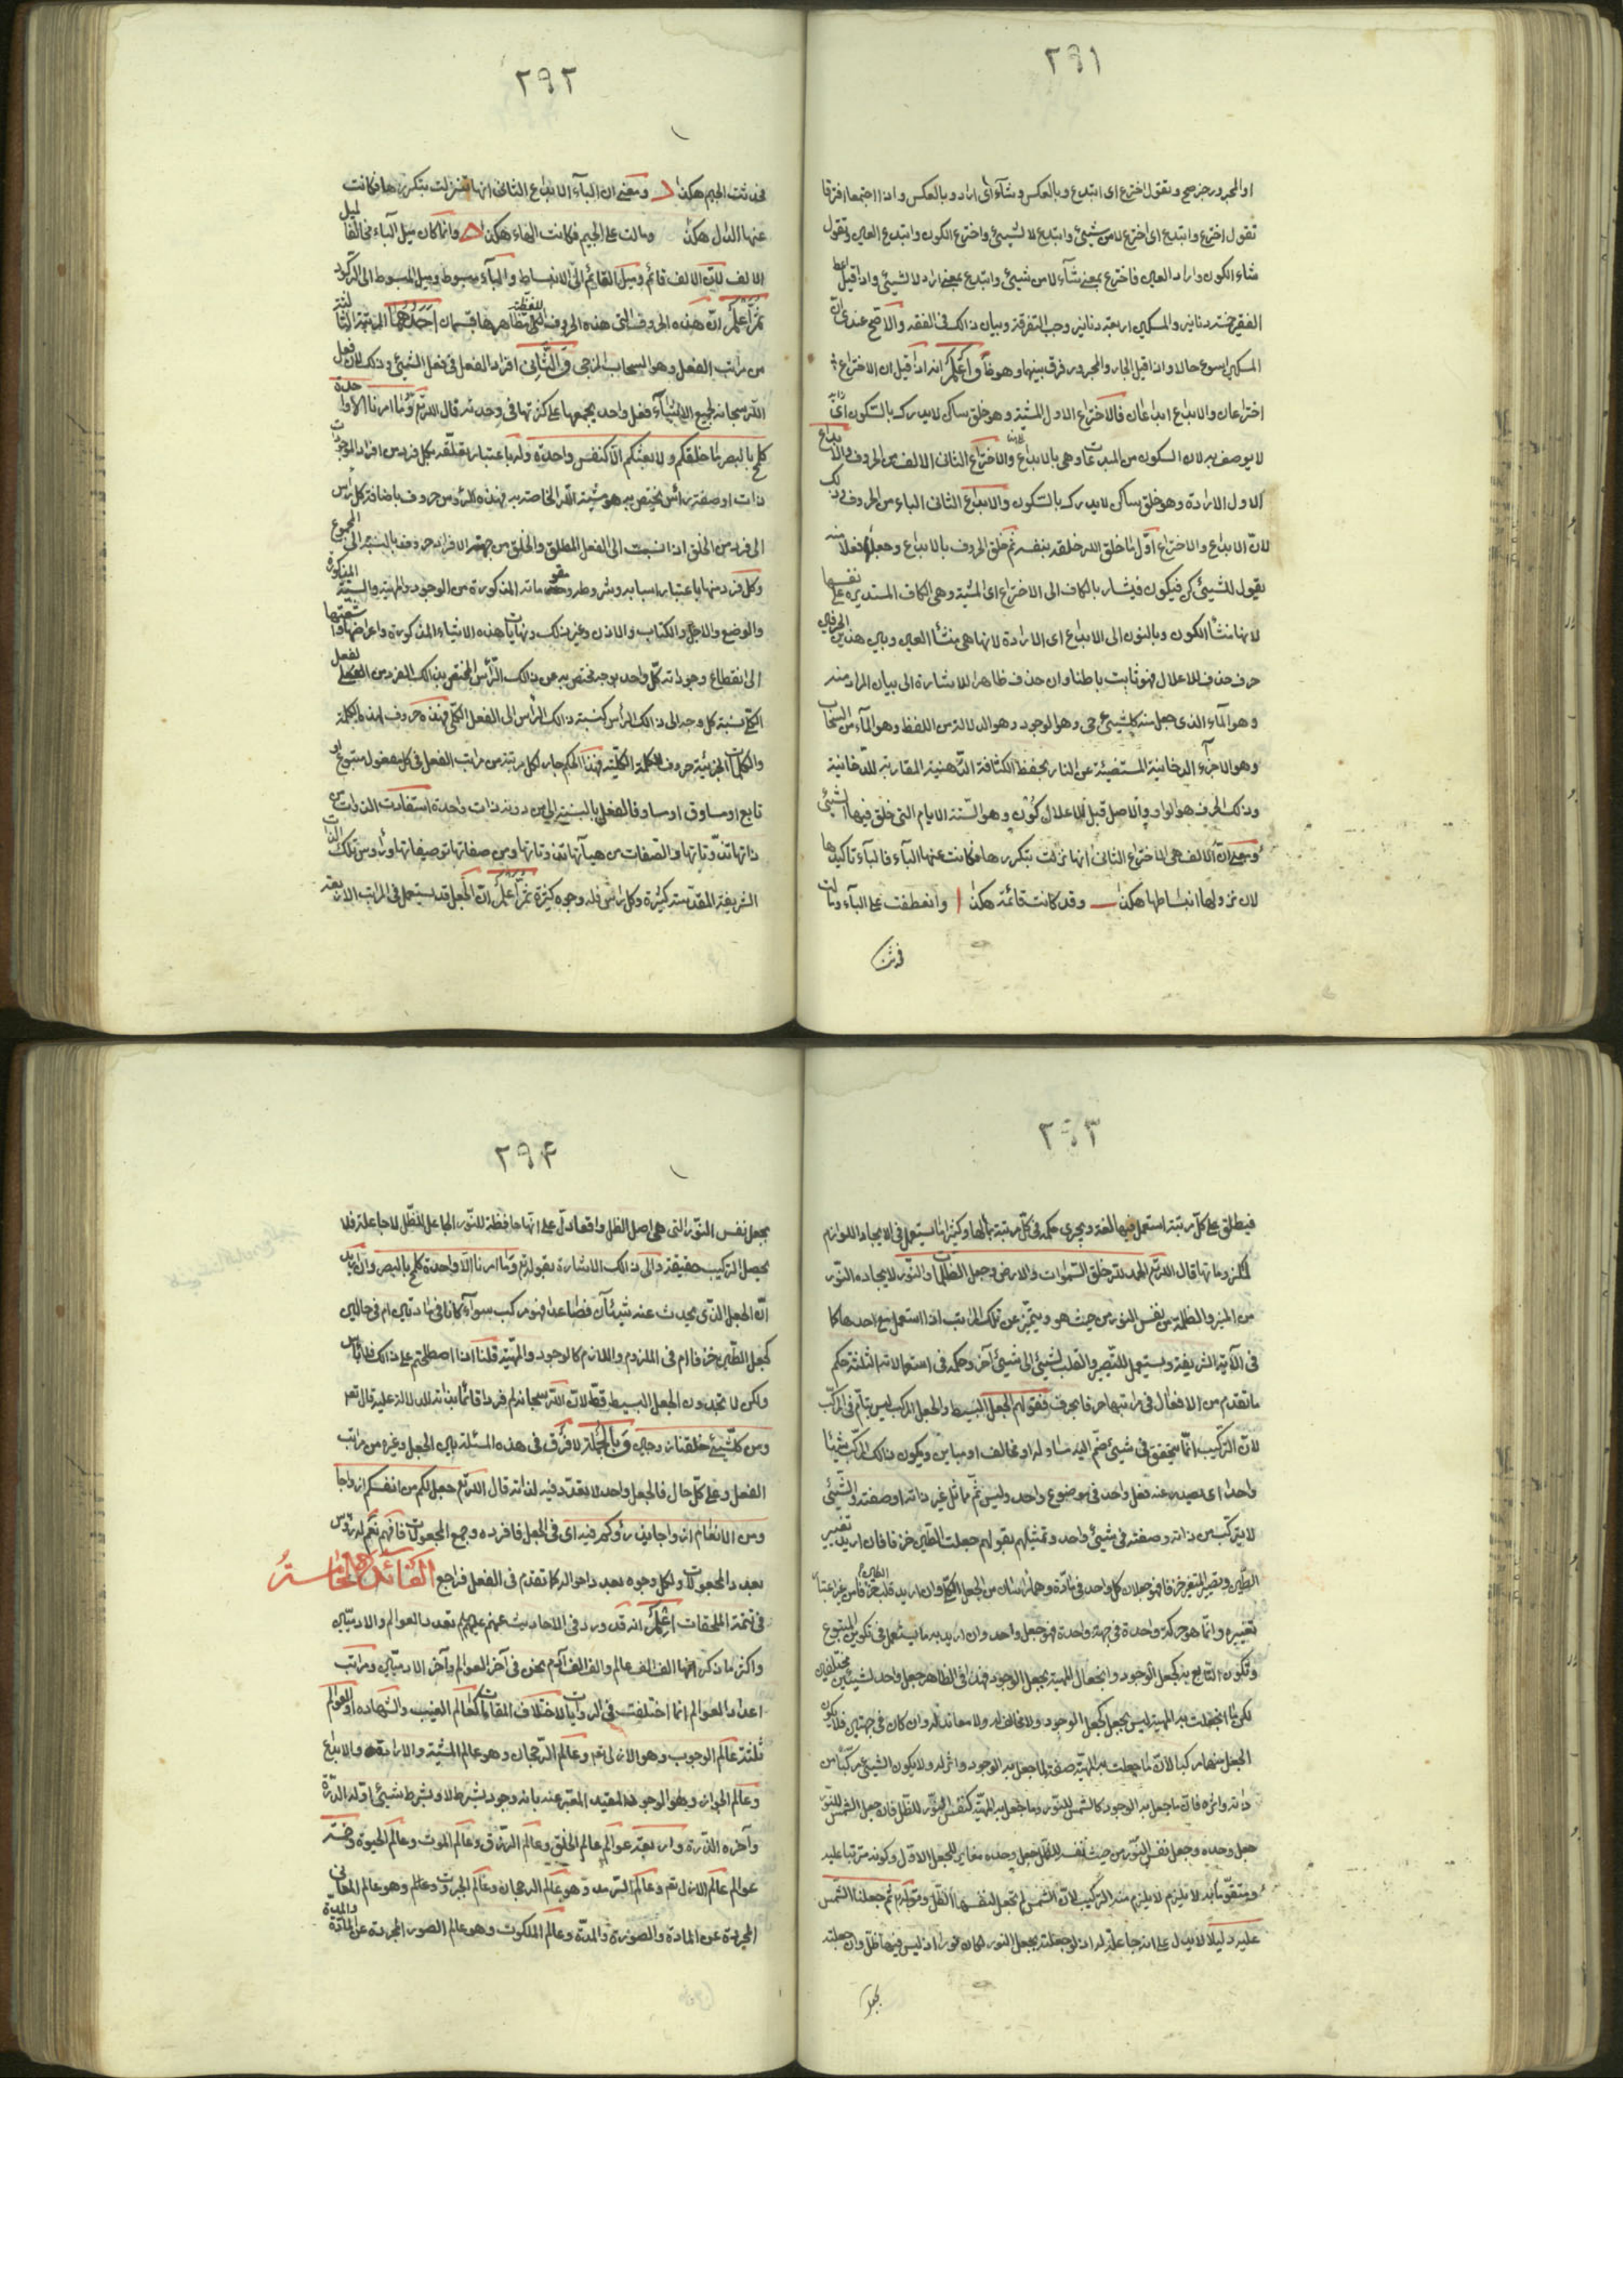 ٢٩١
او المجرور جز صح وتقول اخترع اى ابتدع وبالعكس وشآء اى اراد وبالعكس واذا اجتمعا افترقا
تقول اخترع وابتدع اى اخترع لا من شيئ وابتدع لا لشيئ واخترع الكون وابتدع العين وتقول
شاء الكون واراد العين فاخترع بمعنى شآء لا من شيئ وابتدع بمعنى اراد لا لشيئ واذا قيل اعط
الفقير خمسة دنانير والمسكين اربعة دنانير وجب التفرقة وبيان ذالك فى الفقه والاصح عندى ان
المسكين اسوء حالا واذا قيل الجار والمجرور فرق بينهما وهو واعلم انه اذا قيل ان الاختراع
اختراعان والابداع ابداعان فالاختراع الاول المشية وهو خلق ساكن لا يدرك بالسكون اى
لا يوصف به لان السكون من المبدعات وهى بالابداع والاختراع الثانى الالف من الحروف والابداع
الاول الارادة وهو خلق ساكن لا يدرك بالسكون والابداع الثانى الباء من الحروف وذلك
لان الابداع والاختراع اول ما خلق الله خلقه بنفسه ثم خلق الحروف بالابداع وجعلها فعلا منه
يقول للشيئ كن فيكون فيشار بالكاف الى الاختراع اى المشية وهى الكاف المستديرة على نفسها
لانها منشأ الكون وبالنون الى الابداع اى الارادة لانها هى منشأ العين وبين هذين الحرفين
حرف حذف للاعلال فهو ثابت باطنا وان حذف ظاهرا للاشارة الى بيان المراد منه
وهو المآء الذى جعل منه كل شيئ حى وهو الوجود وهو الدلالة من اللفظ وهو المآء من السحاب
وهو الاجزآء الدخانية المستضيئة عن النار بحفظ الكثافة الدهنية المقاربة للدخانية
وذلك الحرف هو الواو والاصل قبل الاعلال كون وهو الستة الايام التى خلق فيها الشيئ
ومعنى ان الالف هى الاختراع الثانى انها نزلت بتكررها فكانت عنها البآء فالبآء تاكيدها
لان نزولها انبساطها هكذا ـــ وقد كانت قائمة هكذا ا وانعطفت على البآء ومالت
فحدثت
٢٩٢
فحدثت الجيم هكذا ومعنى ان البآء الابداع الثانى انها تنزلت بتكررها فكانت
عنها الدال هكذا ومالت على الجيم فكانت الهاء هكذا وانما كان ميل البآء مخالفا لميل
الالف لان الالف قائم وميل القائم الى الانبساط والبآء مبسوط وميل المبسوط الى الركود
ثم اعلم ان هذه الحروف التى هذه الحروف اللفظية مظاهرها قسمان احدهما المرتبة الثالثة
من مراتب الفعل وهو السحاب المزجى والثانى افراد الفعل فى فعل الشيئ وذلك لان فعل
الله سبحانه لجميع الاشيآء فعل واحد يجمعها على كثرتها فى وحدته قال الله تع وما امرنا الا واحدة
كلمح بالبصر ما خلقكم ولا بعثكم الا كنفس واحدة وله باعتبار تعلقه بكل فرد من افراد الموجودات
ذات او صفة رأس يختص به هو مشية الله الخاصة به فهذه الرؤس حروف باضافة كل رأس
الى فرد من الخلق اذا نسبت الى الفعل المطلق والخلق من جهة الافراد حروف بالنسبة الى المجموع
وكل فرد منها باعتبار اسبابه وشروطه ومقوماته المذكورة من الوجود والمهية والستة المذكورة
والوضع والاجل والكتاب والاذن وغير ذلك ونهايات هذه الاشياء المذكورة واعراضها واشعتها
الى انقطاع وجوداته كل واحد بوجه مختص به من ذالك الرأس المختص بذالك الفرد من الفعل
الكلى نسبة كل وجه الى ذالك الرأس كنسبة ذالك الرأس الى الفعل الكلى فهذه حروف لهذه الكلمة
والكلمات الجزئية حروف للكلمة الكلية فهذا الحكم جار لكل مرتبة من مراتب الفعل فى كل مفعول متبوع او
تابع او مساوق او مساو فالفعل بالنسبة الى من دونه ذات واحدة استفادت الذوات من
ذاتها تذوتاتها والصفات من هيآتها تذوتاتها ومن صفاتها توصيفاتها ورأوس تلك الذات
الشريفة المقدسة كثيرة وكل رأس فله وجوه كثيرة ثم اعلم ان الجعل قد يستعمل فى المراتب الاربعة
٢٩٣
فيطلق على كل مرتبة استعمل فيها لغة ويجرى حكمه فى كل مرتبة بمالها وكثيرا ما يستعمل فى الايجاد اللوازم
لملزوماتها قال الله تع الحمد لله خلق السموات والارض وجعل الظلمات والنور لايجاده النور
من المنير والظلمة من نفس النور من حيث هو ويتميز عن تلك المراتب اذا استعمل مع احدها كما
فى الآية الشريفة ويستعمل للتصيير والقلب لشيئ الى شيئ آخر وحكمه فى استعمالاته الثلثة حكم
ما تقدم من الافعال فى مراتبها حرفا بحرف فقولهم الجعل البسيط والجعل المركب ليس بتام فى المركب
لان التركيب انما يتحقق فى شيئ ضم اليه مساو له او مخالف او مباين ويكون ذالك المركب شيئا
واحدا اى يصدر عنه فعل واحد فى موضوع واحد وليس ثم ماثل غير ذاته او صفته والشيئ
لا يتركب من ذاته وصفته فى شيئ واحد وتمثيلهم بقولهم جعلت الطين خزفا فان اريد تغيير
الطين وتصيير المتغير خزفا فهو جعلان كل واحد فى مادة وهما رأسان من الجعل الكلى وان اريد قلب الطين خزفا من غير اعتبار
تغييره وانما هو حركة واحدة فى جهة واحدة فهو جعل واحد وان اريد به ما يستعمل فى تكوين المتبوع
وتكون التابع به كجعل الوجود وانجعال المهية بجعل الوجود فهذا فى الظاهر جعل واحد لشيئين مختلفين
لكن ما انجعلت به المهية ليس بجعل كجعل الوجود ولا مخالف له ولا معاند له وان كان فى جهتين فلا يكون
الجعل منهما مركبا لان ما جعلت به المهية صفة لما جعل به الوجود واثر له ولا يكون الشيئ مركبا من
ذاته واثره فان ما جعل به الوجود كالشمس للنور وما جعل به المهية كنفس النور للظل فان جعل الشمس للنور
جعل وحده وجعل نفس النور من حيث نفسه للظل جعل وحده مغاير للجعل الاول وكونه مترتبا عليه
ومتقوما به لا يلزم لا يلزم منه التركيب لان الشمس لم تجعل لنفسها الظل وقوله تع ثم جعلنا الشمس
عليه دليلا لا يدل على انه جاعلة له اذ لو جعلته بجعل النور لكان نورا اذ ليس فيها ظل وان جعلته
بجعل
٢٩۴
بجعل نفس النور التى هى اصل الظل واقعا دل على انها حافظة للنور الجاعل للظل لا جاعلة فلا
يحصل التركيب حقيقة والى ذالك الاشارة بقوله تع وما امرنا الا واحدة كلمح بالبصر وان اريد
ان الجعل الذى يحدث عنه شيئآن فصاعدا فهو مركب سوآء كانا فى مادتين ام فى حالين
كجعل الطين خزفا ام فى الملزوم واللازم كالوجود والمهية قلنا اذا اصطلحتم على ذالك فلا باس
ولكن لا تجدون الجعل البسيط قط لان الله سبحانه لم يخلق فردا قائما بذاته للدلالة عليه قال تع
ومن كل شيئ خلقنا زوجين وبالجملة لا فرق فى هذه المسئلة بين الجعل وغيره من مراتب
الفعل وعلى كل حال فالجعل واحد لا تعدد فيه لذاته قال الله تع جعل لكم من انفسكم ازواجا
ومن الانعام ازواجا يذرؤكم فيه اى فى الجعل فافرده وجمع المجعولات فافهم نعم له رؤس
بعدد المجعولات ولكل وجوه بعدد احواله كما تقدم فى الفعل فراجع الفائدة الخامسة
فى تتمة الملحقات اعلم انه قد ورد فى الاحاديث عنهم عليهم تعدد العوالم والادميين
واكثر ما ذكر انها الف الف عالم والف الف آدم نحن فى آخر العوالم وآخر الادميين ومراتب
اعداد العوالم انما اختلفت فى الروايات لاختلاف المقامات كعالم الغيب والشهادة او العوالم
ثلثة عالم الوجوب وهو الازل تع وعالم الرجحان وهو عالم المشية والارادة والابداع
وعالم الجواز وهو الوجود المقيد المعبر عنه بانه وجود بشرط لا وبشرط شيئ اوله الدرة
وآخره الذرة واربعة عوالم عالم الخلق وعالم الرزق وعالم الموت وعالم الحيوة وخمسة
عوالم عالم الازل تع وعالم السرمد وهو عالم الرجحان وعالم الجبروت وعالم وهو عالم المعانى
المجردة عن المادة والصورة والمدة وعالم الملكوت وهو عالم الصور المجردة عن المادة والمدة